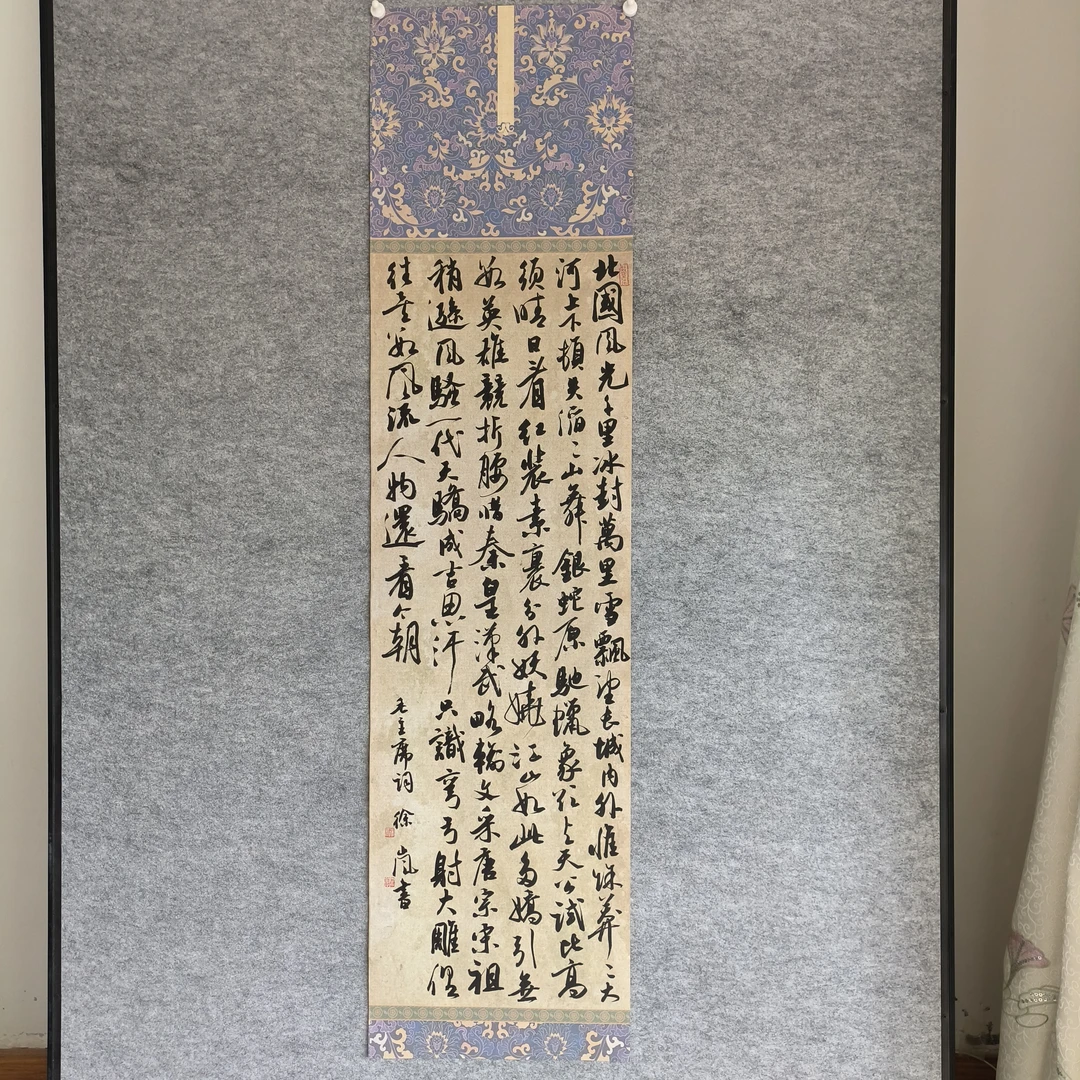 北國風光千里冰封萬里雪飄望长城内外惟餘莽〻大
河上下頓失滔〻山舞銀蛇原馳蠟象欲与天公試比高
須晴日看红裝素裹分外妖嬈江山如此多嬌引無
数英雄競折腰惜秦皇漢武略輸文采唐宗宋祖
稍遜風騷一代天驕成吉思汗只識彎弓射大雕俱
往矣数風流人物還看今朝
毛主席詞 徐嵐書